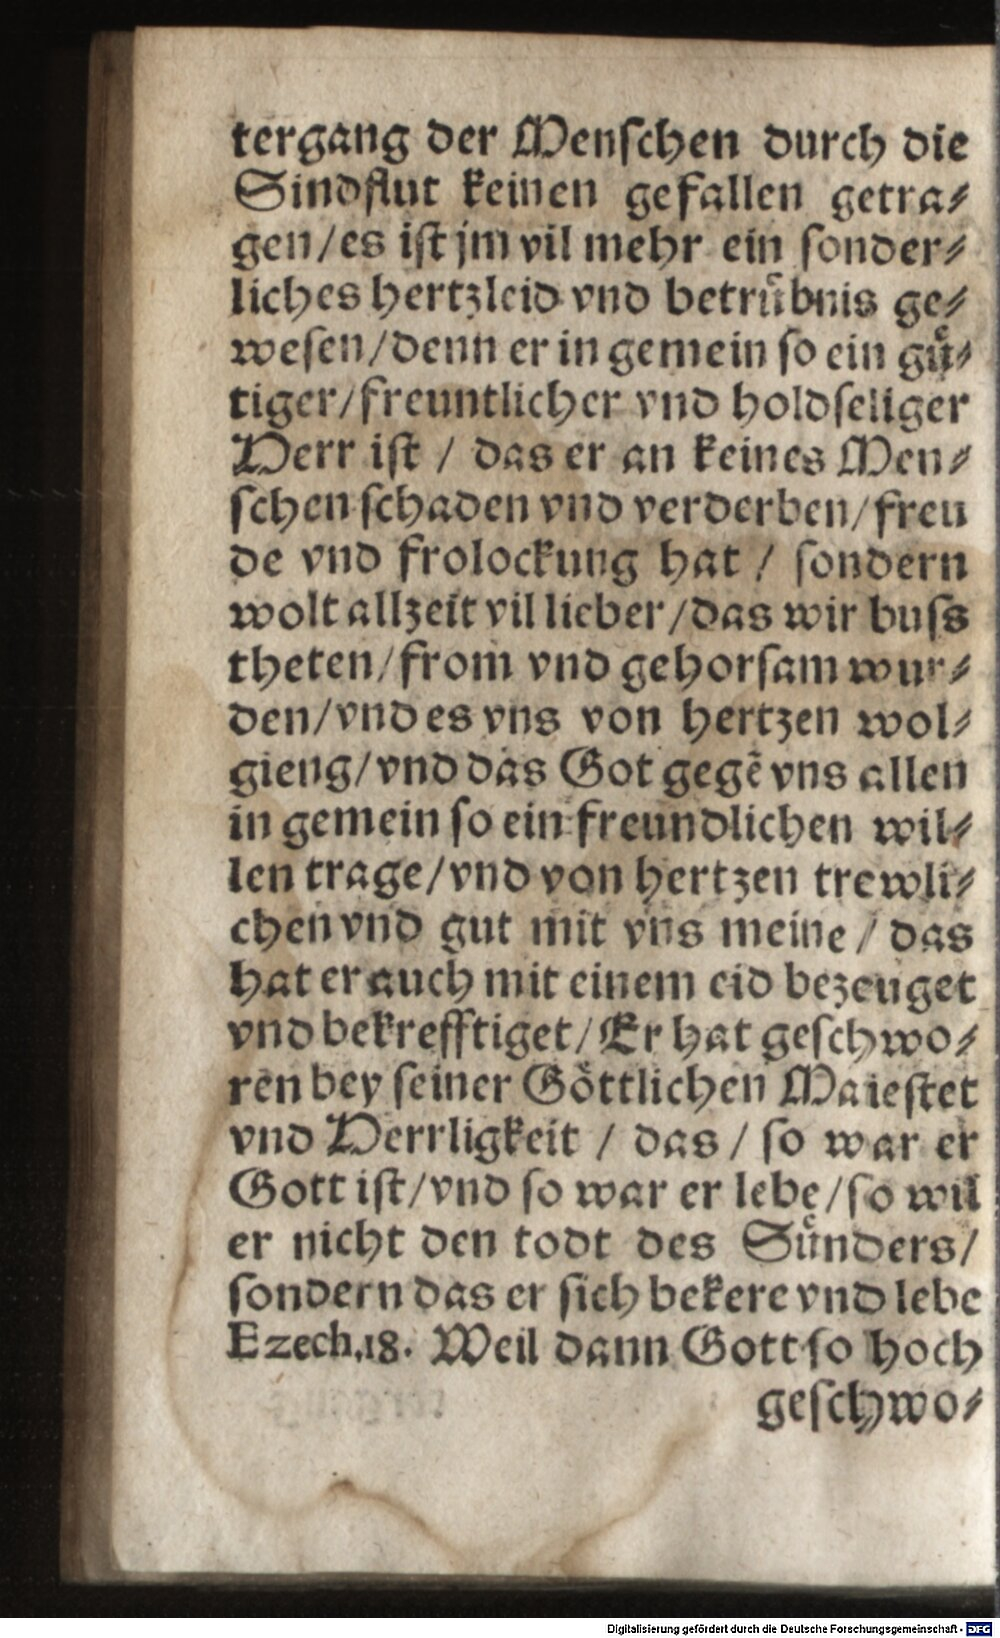 tergang der Menschen durch die
Sindflut keinen gefallen getra⸗
gen/es ist jm vil mehr ein sonder⸗
liches hertzleid vnd betrübnis ge⸗
wesen/denn er in gemein so ein gü⸗
tiger/freuntlicher vnd holdseliger
Herr ist / das er an keines Men⸗
schen schaden vnd verderben/freu
de vnd frolockung hat / sondern
wolt allzeit vil lieber/das wir buss
theten/from vnd gehorsam wur⸗
den/vnd es vns von hertzen wol⸗
gieng/vnd das Got gegē vns allen
in gemein so ein freundlichen wil⸗
len trage/vnd von hertzen trewli⸗
chen vnd gut mit vns meine / das
hat er auch mit einem eid bezeuget
vnd bekrefftiget/Er hat geschwo⸗
ren bey seiner Göttlichen Maiestet
vnd Herrligkeit / das / so war er
Gott ist/vnd so war er lebe/so wil
er nicht den todt des Sünders/
sondern das er sich bekere vnd lebe
Ezech.18. Weil dann Gott so hoch
geschwo⸗
Digitalisierung gefördert durch die Deutsche Forschungsgemeinschaft - DFG